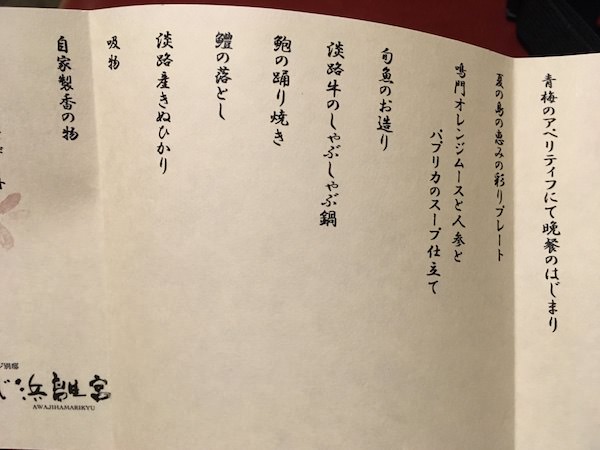 青梅のアペリティフにて晩餐のはじまり
夏の島の恵みの彩りプレート
鳴門オレンジムースと人参と
パプリカのスープ仕立て
旬魚のお造り
淡路牛のしゃぶしゃぶ鍋
鮑の踊り焼き
鱧の落とし
淡路産きぬひかり
吸物
自家製香の物
AWAJIHAMARIKYU